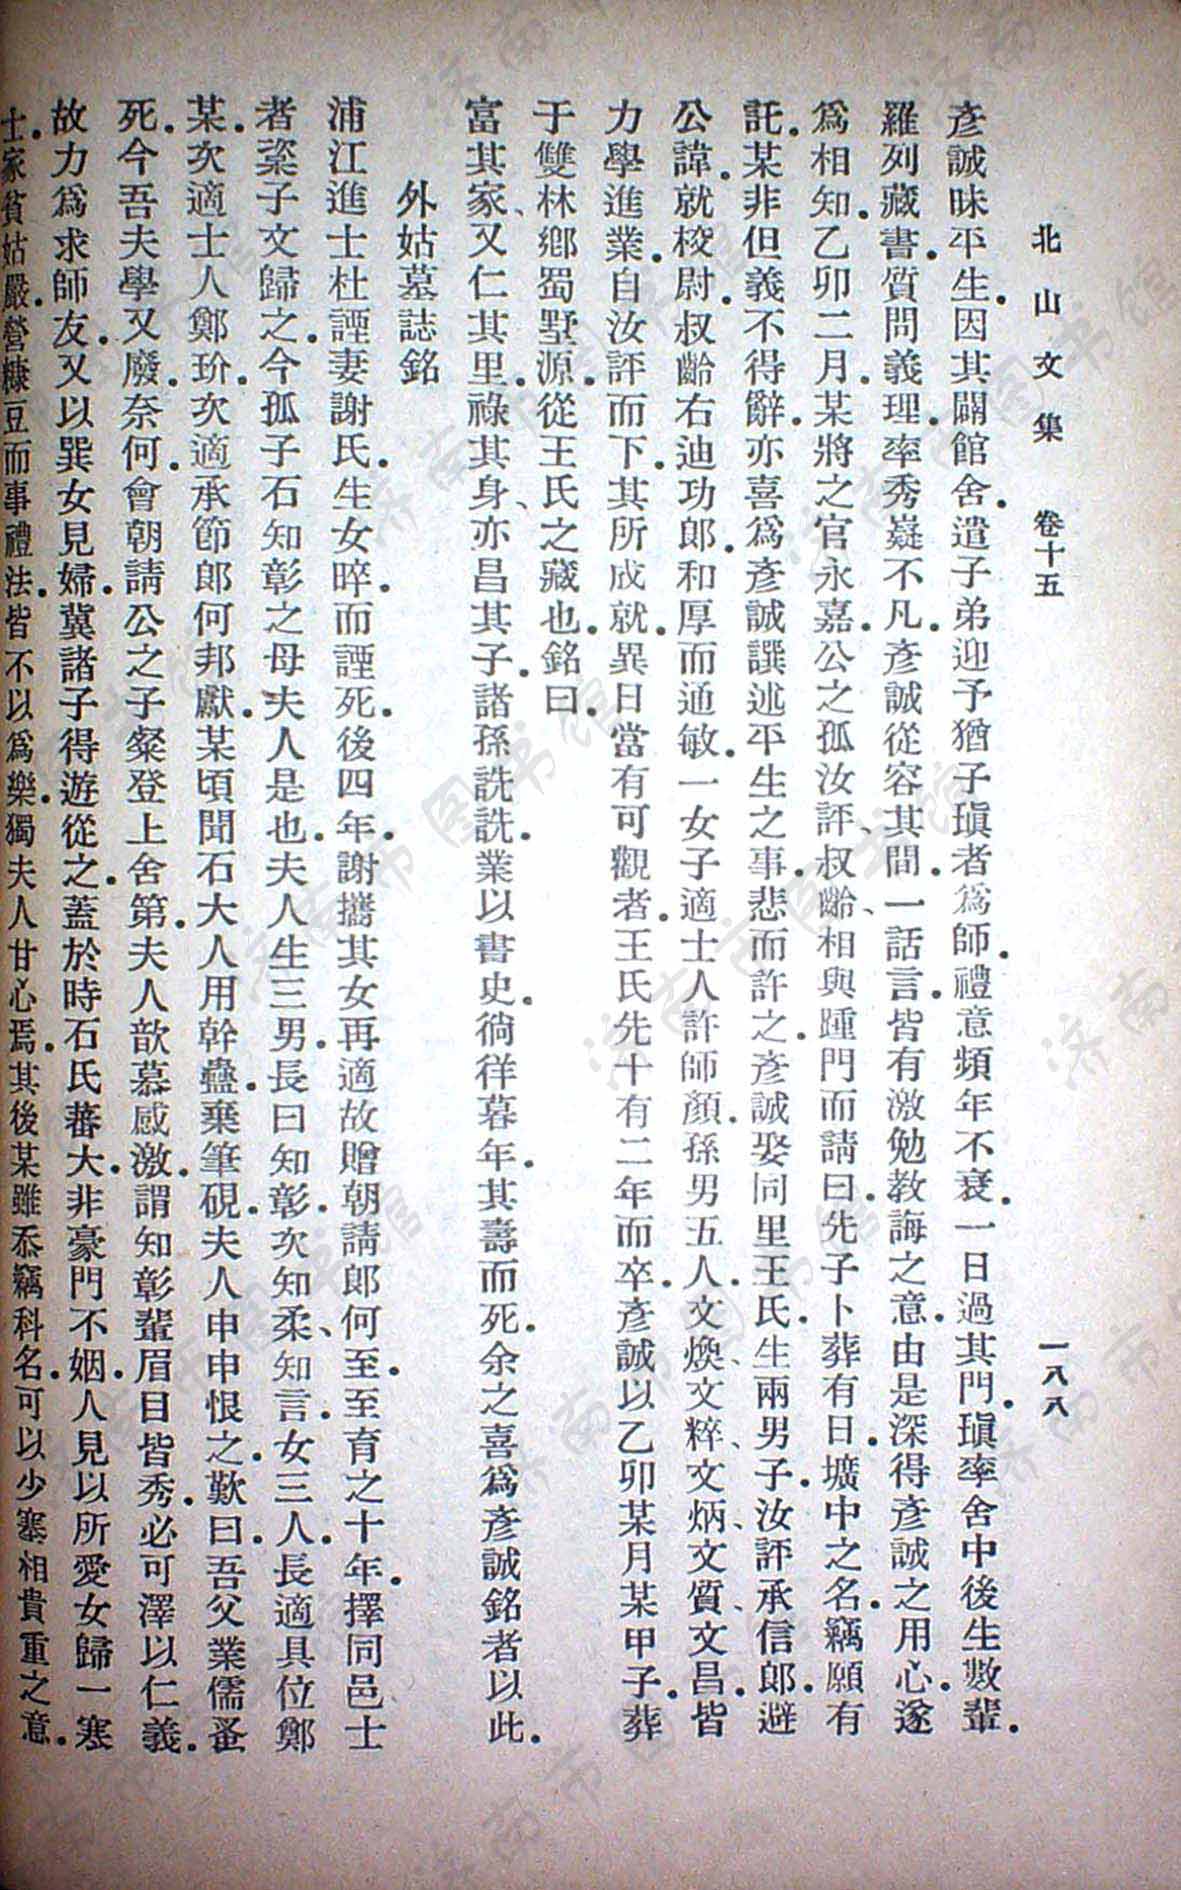 北山文集　卷十五　一八八
彥誠昧平生．因其闢館舍．遣子弟迎予猶子瑱者爲師．禮意頻年不衰．一日過其門．瑱率舍中後生數輩．
羅列藏書．質問義理．率秀嶷不凡．彥誠從容其間．一話言．皆有激勉教誨之意．由是深得彥誠之用心．遂
爲相知．乙卯二月．某將之官永嘉．公之孤汝評、叔齡、相與踵門而請曰．先子卜葬有日．壙中之名．竊願有
託．某非但義不得辭．亦喜爲彥誠譔述平生之事．悲而許之．彥誠娶同里王氏．生兩男子．汝評承信郎．避
公諱．就校尉．叔齡右迪功郎．和厚而通敏．一女子適士人許師顏．孫男五人．文煥、文粹、文炳、文質、文昌．皆
力學進業．自汝評而下．其所成就．異日當有可觀者．王氏先十有二年而卒．彥誠以乙卯某月某甲子．葬
于雙林鄉蜀墅源．從王氏之藏也．銘曰．
富其家、又仁其里．祿其身、亦昌其子．諸孫詵詵．業以書史．徜徉暮年．其壽而死．余之喜爲彥誠銘者以此．
外姑墓誌銘
浦江進士杜諲妻謝氏．生女晬．而諲死．後四年．謝攜其女再適故贈朝請郎何至．至育之十年．擇同邑士
者粢子文歸之．今孤子石知彰之母夫人是也．夫人生三男．長曰知彰．次知柔、知言．女三人．長適具位鄭
某．次適士人鄭玠．次適承節郎何邦獻．某頃聞石大人用幹蠱．棄筆硯．夫人申申恨之．歎曰．吾父業儒蚤
死．今吾夫學又廢．奈何．會朝請公之子粲登上舍第．夫人歆慕感激．謂知彰輩眉目皆秀．必可澤以仁義．
故力爲求師友．又以巽女見婦．冀諸子得遊從之．蓋於時石氏蕃大．非豪門不姻．人見以所愛女歸一寒
士．家貧姑嚴．營糠豆而事禮法．皆不以爲樂．獨夫人甘心焉．其後某雖忝竊科名．可以少塞相貴重之意．